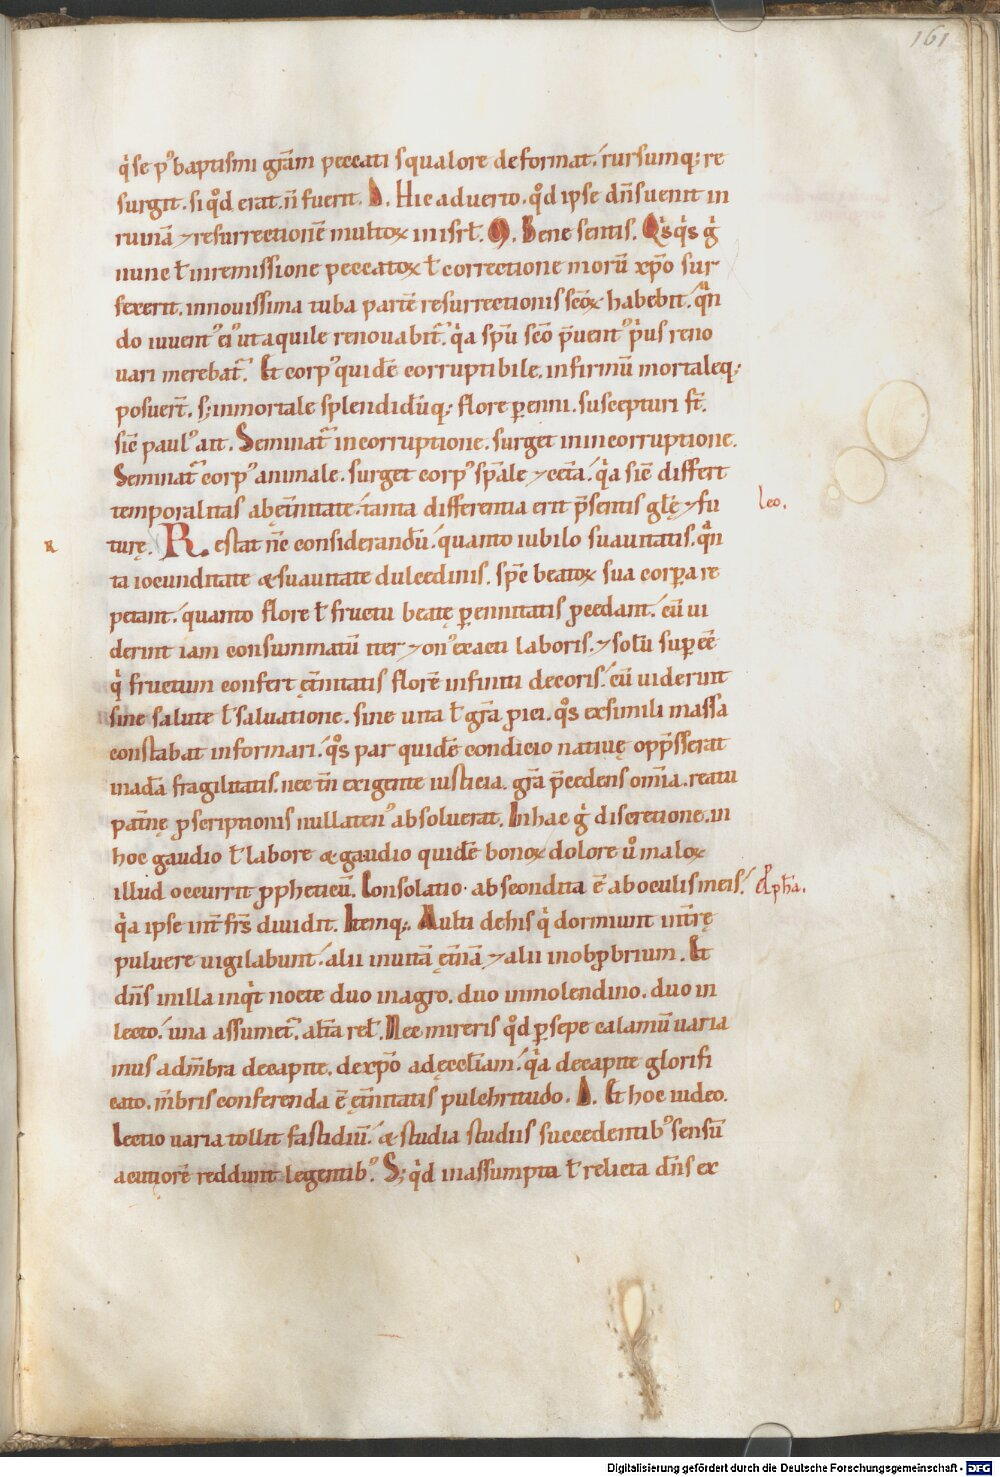 161
q̇ se p᷒ baptismi gr̄am peccati squalore deformat. rursumq; re
surgit. si q̊d erat. n̄ fuerit. D. Hic aduerto. q̊d ipse dn̄s uenit in
ruinā ⁊ resurrectionē multoꝝ in isrł. M. Bene sentis. Q̇sq̇s g̊
nunc ł in remissione peccatoꝝ ł correctione morū xp̄o sur
rexerit. in nouissima tuba partē resurrectionis sc̄oꝝ habebit. q̄n
do iuuent᷒ ei᷒ ut aquile renouabit᷑. q̇a sp̄u sc̄o p̄uent᷒ ṗus reno
uari merebat᷑. Et corp᷒ quidē corruptibile. infirmū mortaleq;
posuer̄t. s; inmortale splendidūq; flore ꝑenni. suscepturi st̄.
sic̄ paul᷒ ait. Seminat᷑ in corruptione. surget in incorruptione.
Seminat᷑ corp᷒ animale. surget corp᷒ sp̄ale ⁊ cet̄a. q̇a sic̄ differt
temporalitas ab ęt̄nitate. tanta differentia erit p̄sentis glę̄ ⁊ fu
leo.
turę. Restat n̄c considerandū. quanto iubilo suauitatis. q̄n
R
ta iocunditate & suauitate dulcedinis. sp̄c beatoꝝ sua corꝑa re
petant. quanto flore ł fructu beatę ꝑennitatis ꝓcedant. cū ui
derint iam consummatū iter ⁊ on᷒ exacti laboris. ⁊ solū suꝑ eē
q̇ fructum confert ęt̄nitatis florē infiniti decoris. cū uiderint
sine salute ł saluatione. sine uita ł gr̄a ꝓici. q̊s ex simili massa
constabat informari. q̊s par quidē condicio natiuę opp̄sserat
in adā fragilitatis. nec tn̄ exigente iusticia. gr̄a p̄cedens om̄ia. reatu
pat̄nę ꝓscriptionis nullaten᷒ absoluerat. In hac g̊ discretione. in
hoc gaudio ł labore & gaudio quidē bonoꝝ dolore u̇o maloꝝ
illud occurrit ꝓpheticū. Consolatio abscondita ē ab oculis meis.
Ꝓph̄a.
q̇a ipse int̄ fr̄s diuidit. Itemq;. Multi de his q̇ dormiunt in t̄rę
puluere uigilabunt. alii in uitā ęt̄nā ⁊ alii in obꝓbrium. Et
dn̄s in illa inq̇t nocte duo in agro. duo in molendino. duo in
lecto. una assumet᷑. alt̄a rel̄. Nec mireris q̊d ꝑsepe calamū uaria
mus ad m̄bra de capite. de xp̄o ad ęccl̄iam. q̇a de capite glorifi
cato. m̄bris conferenda ē ęt̄nitatis pulchritudo. D. Et hoc uideo.
Lectio uaria tollit fastidiū. & studia studiis succedentib᷒ sensū
acutiorē reddunt legentib᷒. S; q̇d in assumpta ł relicta dn̄s ex
Digitalisierung gefördert durch die Deutsche Forschungsgemeinschaft - DFG